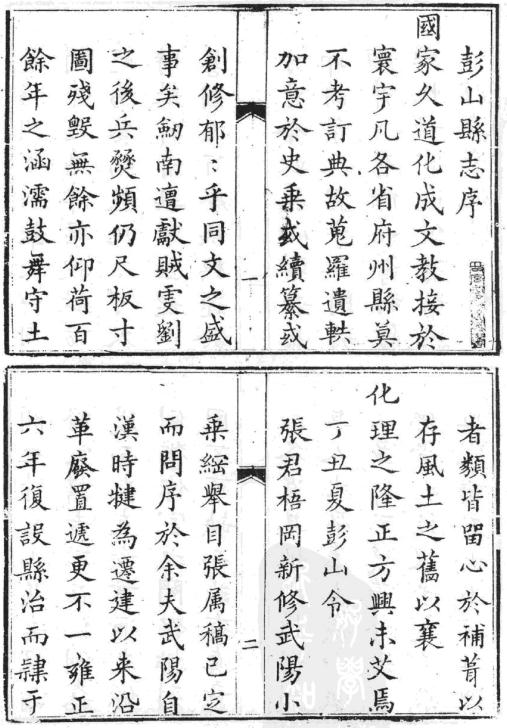 彭山縣志序
國家久道化成文教接於
寰宇凡各省府州縣莫
不考訂典故蒐羅遺軼
加意於史乗或續纂或
創修郁〻乎同文之盛
事矣劒南遭獻賊雯劉
之後兵燹頻仍尺板寸
圖殘毀無餘亦仰荷百
餘年之涵濡鼓舞守土
一
者類皆留心於補葺以
存風土之舊以襄
化理之隆正方興未艾焉
丁丑夏彭山令
張君梧岡新修武陽小
乗綱舉目張属稿已定
而問序於余夫武陽自
漢時犍為遷建以来沿
革廢置遞更不一雍正
六年復設縣治而隸于
二